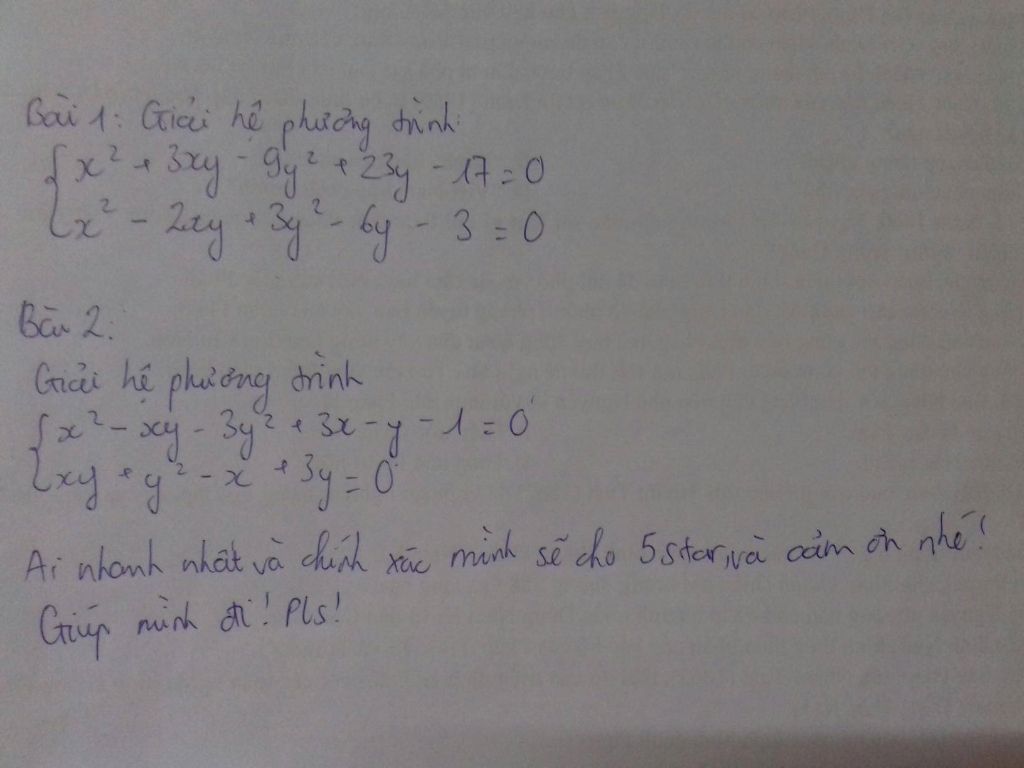 Bài 1: Giải hệ phương trình:
x² + 3xy - 9y² + 23y - 17 = 0
x² - 2xy + 3y² - 6y - 3 = 0
Bài 2:
Giải hệ phương trình
x² - xy - 3y² + 3x - y - 1 = 0
xy + y² - x + 3y = 0
Ai nhanh nhất và chính xác mình sẽ cho 5 star, và cảm ơn nhé!
Giúp mình đi! Pls!